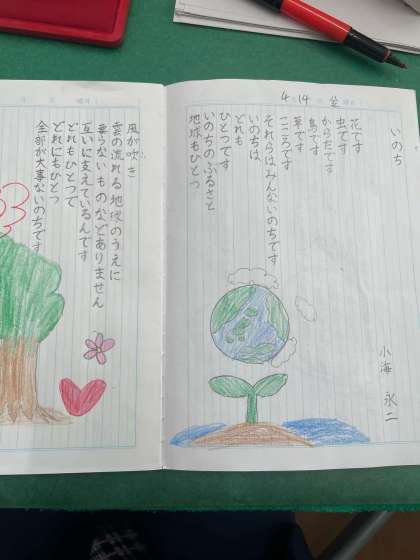 4 14 金
いのち
小海 永二
花です
虫です
からだです
鳥です
草です
こころです
それらはみんないのちです
いのちは
どれも
ひとつです
いのちのふるさと
地球もひとつ
風が吹き
雲の流れる地球のうえに
要らないものなどありません
互いに支えているんです
どれもひとつで
どれにもひとつ
全部が大事ないのちです